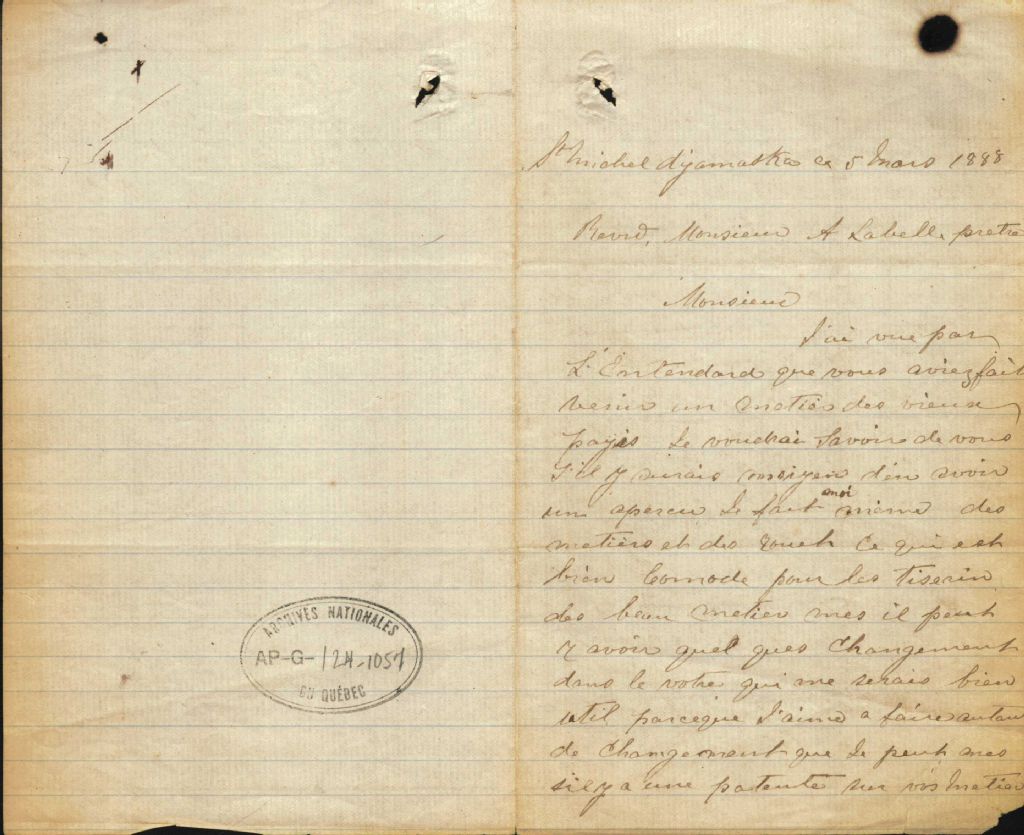 ARCHIVES NATIONALES
AP-G-124-1051
DU QUÉBEC
St Michel d'yamaska ce 5 Mars 1888
Revrd, Monsieur A Labelle pretre
Monsieur
J'ai vue par
L'Entendard que vous aviez fait
venir un metier des vieux
payis Je voudrai Savoir de vous
S'il y aurais moiyen d'en avoir
un apercu Je fait moi même des
metiers et des rouet Ce qui est
bien Comode pour les tiserin
des beau metier mes il peut
y avoir quel ques Changement
dans le votre qui me serais bien
util parceque J'aime a faire autant
de Changement que Je peut mes
sil y a une patente sur vos Metier